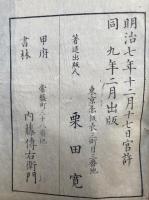 明治七年十一月十七日官許
同 九年二月出版
東京赤坂表三町目三番地
著述出版人 栗田寛
甲府 常盤町二十八番地
書林 内藤傳右衛門